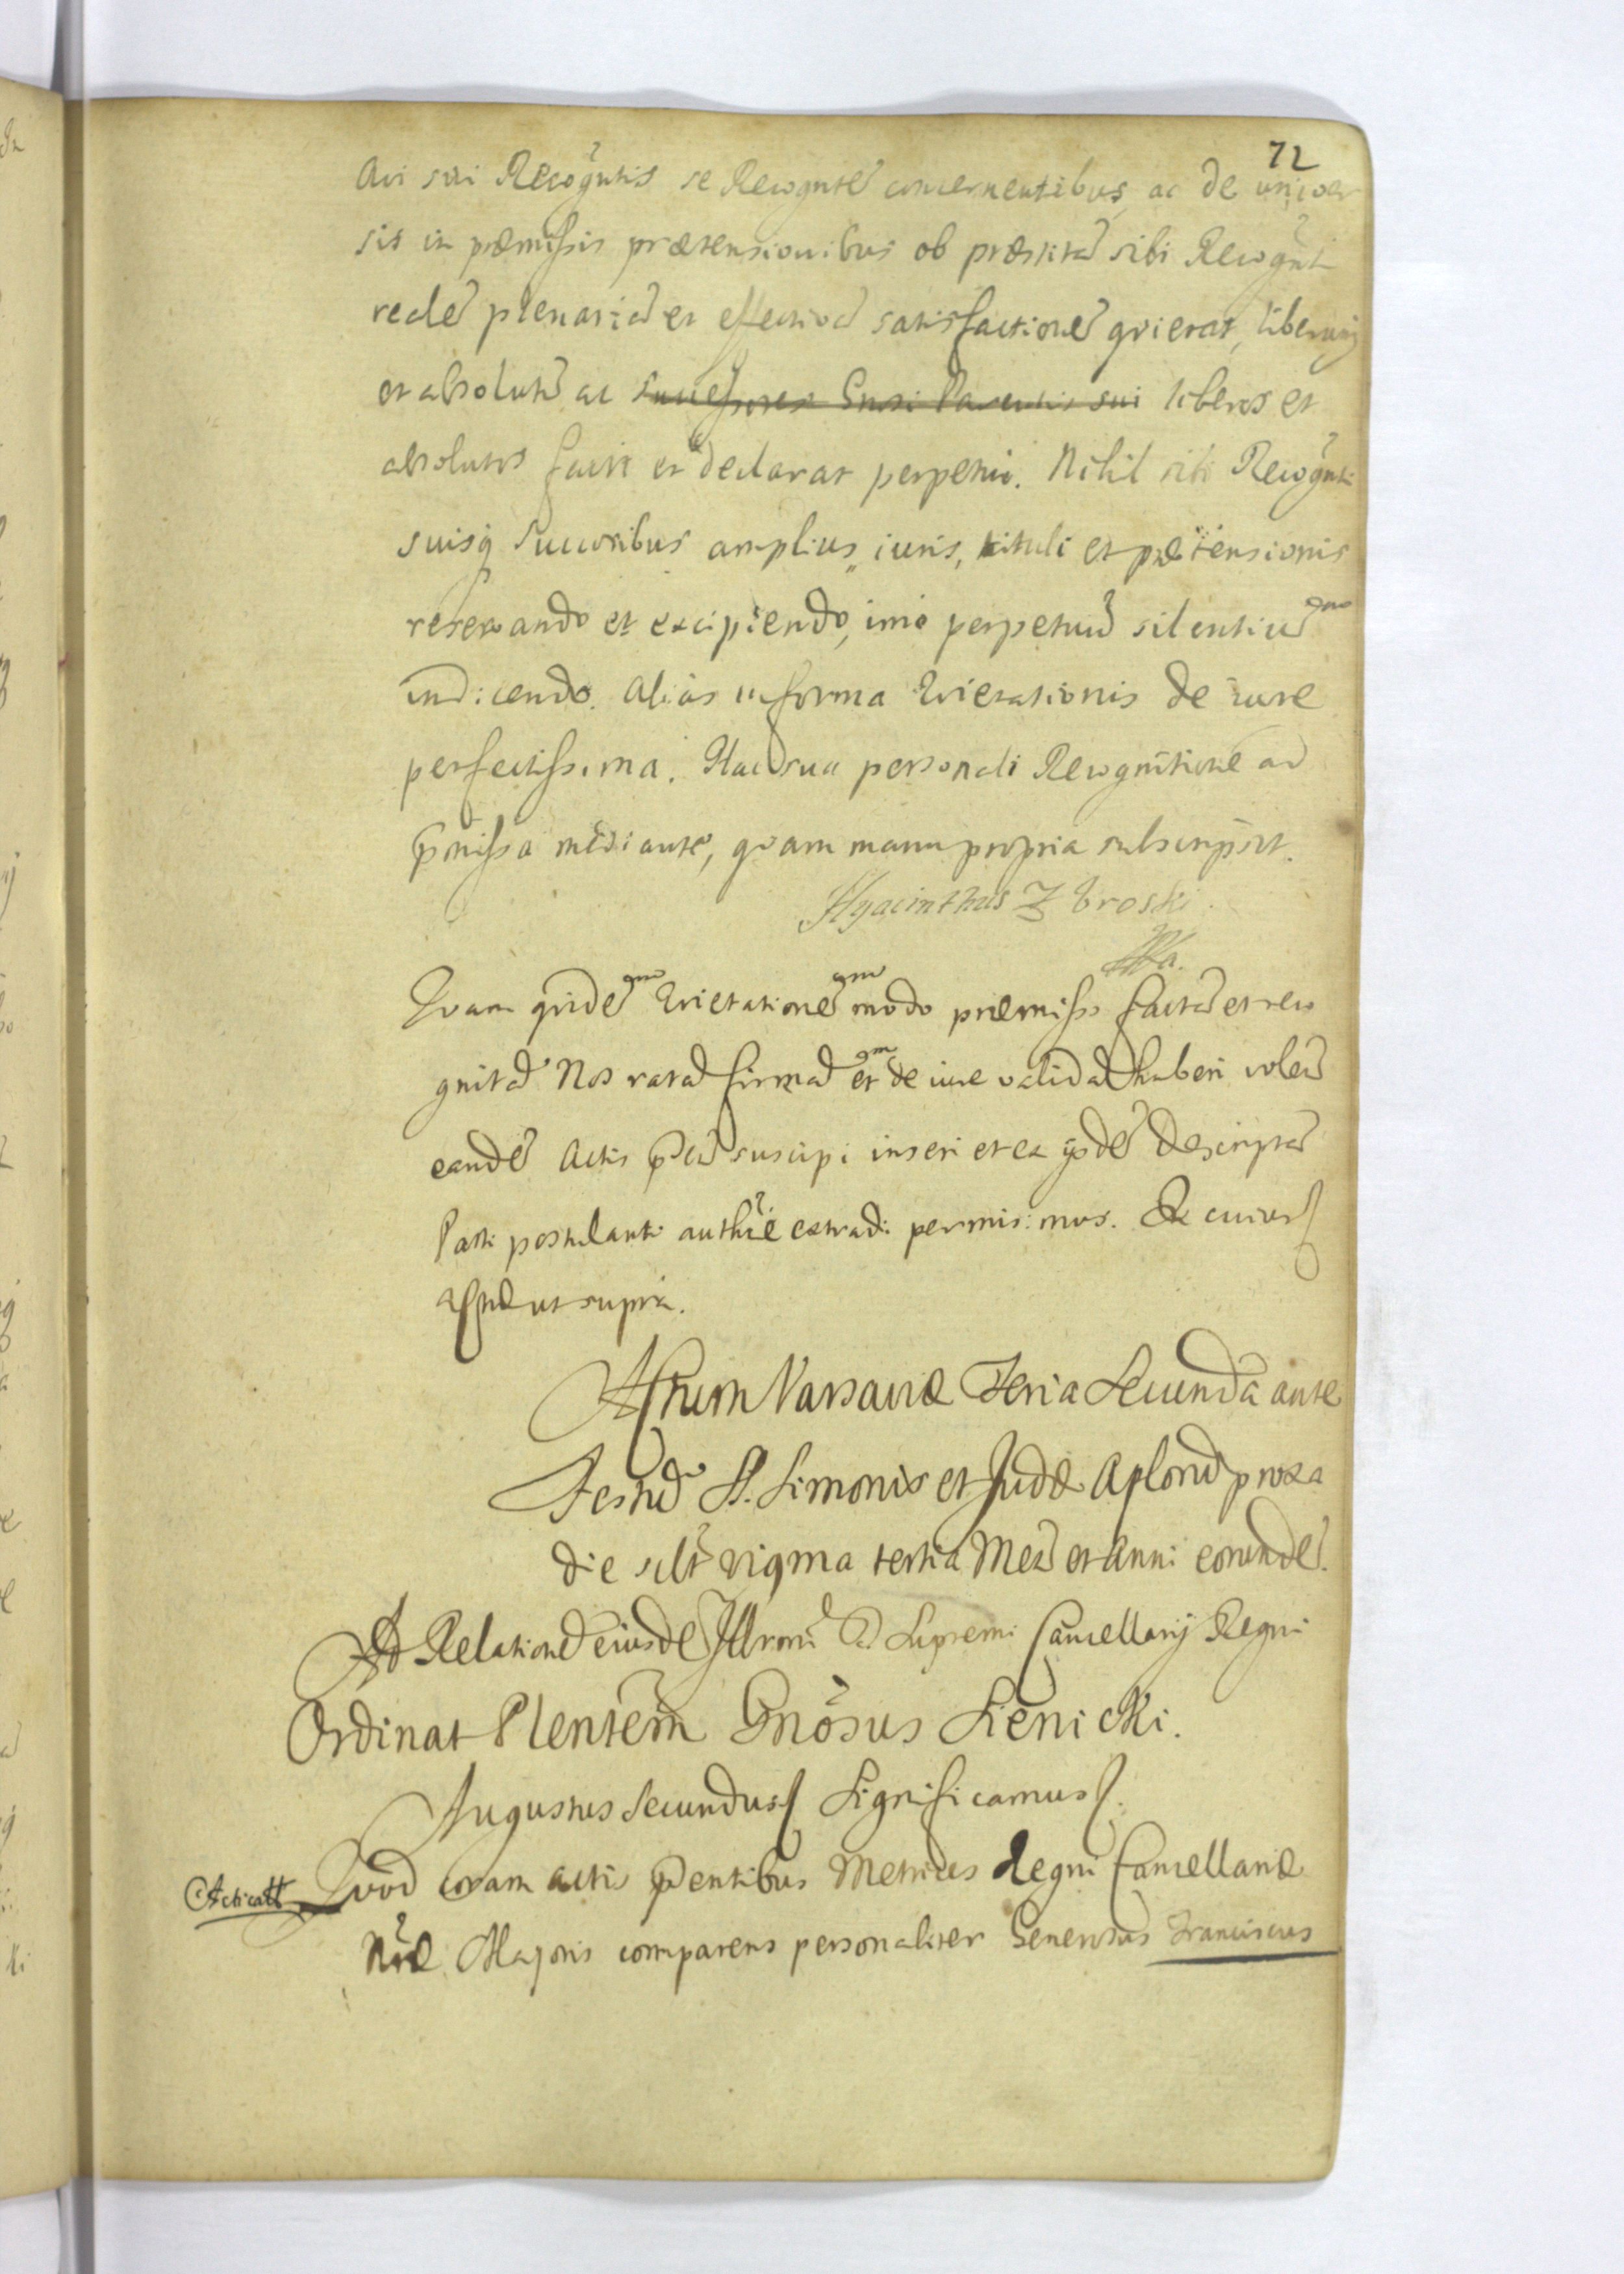 72
Avi sui Recogntis se Recognte concernentibus, ac de univer
sis in præmissis prætensionibus ob præstitã sibi Recognti
realẽ plenariã et effectivã satisfactionẽ qvietat, liberũq
et absolutũ ac Successores Gnosi Parentis sui liberos et
absolutos facit et declarat perpetuò. Nihil sibi Recognti
suisq Succoribus amplius iuris, tituli et prætensionis
reservando et excipiendo, imò perpetuũ silentiũ
indicendo. Aliàs in forma Qvietationis de iure
perfectissima. Hac sua personali Recognitione ad
pmissa mediante, qvam manu propria subscripsit.
Hyacinthus Zbroski.
Qvam qvidẽ Qvietationẽ modo præmisso factã et reco
gnitã Nos ratã firmã et de iure validã haberi volẽs
eandẽ Actis pñtibũ suscipi inseri et ex ijsdẽ descriptã
Parti postulanti authẽ extradi permisimus. In cuius
Actũ ut suprà.
Actum Varsaviæ Feria Secunda ante
Festũ S. Simonis et Judæ Aplorũ proxa
die sclt vigma tertia Mẽs et Anni eorundẽ.
Ad Relationẽ eiusdẽ Illrmi D Supremi Cancellarij Regni
Ordinat Plentem Gnosus Sienicki.
Augustus Secundus Significamus
Acticatt Qvod coram actis pñtibus Metrices Regni Cancellariæ
Nræ Majoris comparens personaliter Generosus Franciscus